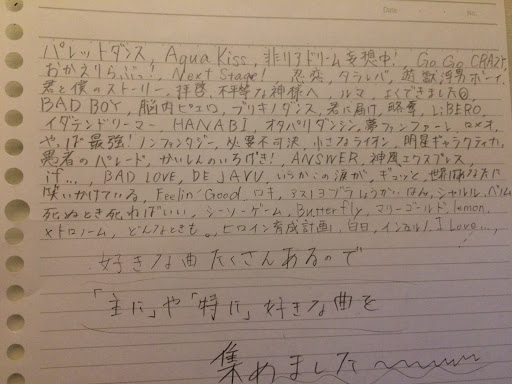 Date No.
パレットダンス, Aqua Kiss, 非リアドリーム妄想中!, Go Go CRAZY,
おかえりらぶっ!, Next Stage!, 恋, タラレバ, 遊戯浮男ボーイ,
君と僕のストーリー, 拝啓,不平等な神様へ, ルマ, よくできました◎,
BAD BOY, 脳内ピエロ, ブリキノダンス, 君に届け, 略奪, LiBERO,
イダテンドリーマー, HANABI, オタパリダンシン,夢ファンファーレ, ロメオ,
やっぱ最強!, ノンファンタジー, 必要不可決, 小さなライオン, 明星ギャラクティカ,
愚者のパレード, かいしんのいちげき!, ANSWER, 神風エクスプレス,
BAD LOVE, DE JAVU, いつかこの涙が, ギュッと, 世界はあなたに
笑いかけている, Feelin' Good, ロキ, アストロブラ, しょうがいはん, シャルル, ベノム
死ぬとき死ねばいい, シーソーゲーム, Butterfly, マリーゴールド, lemon,
メトロノーム, どんなときも。, ヒロイン育成計画, 白日, インフェルノ, I Love...,
好きな曲たくさんあるので
「主に」や「特に」好きな曲を
集めました